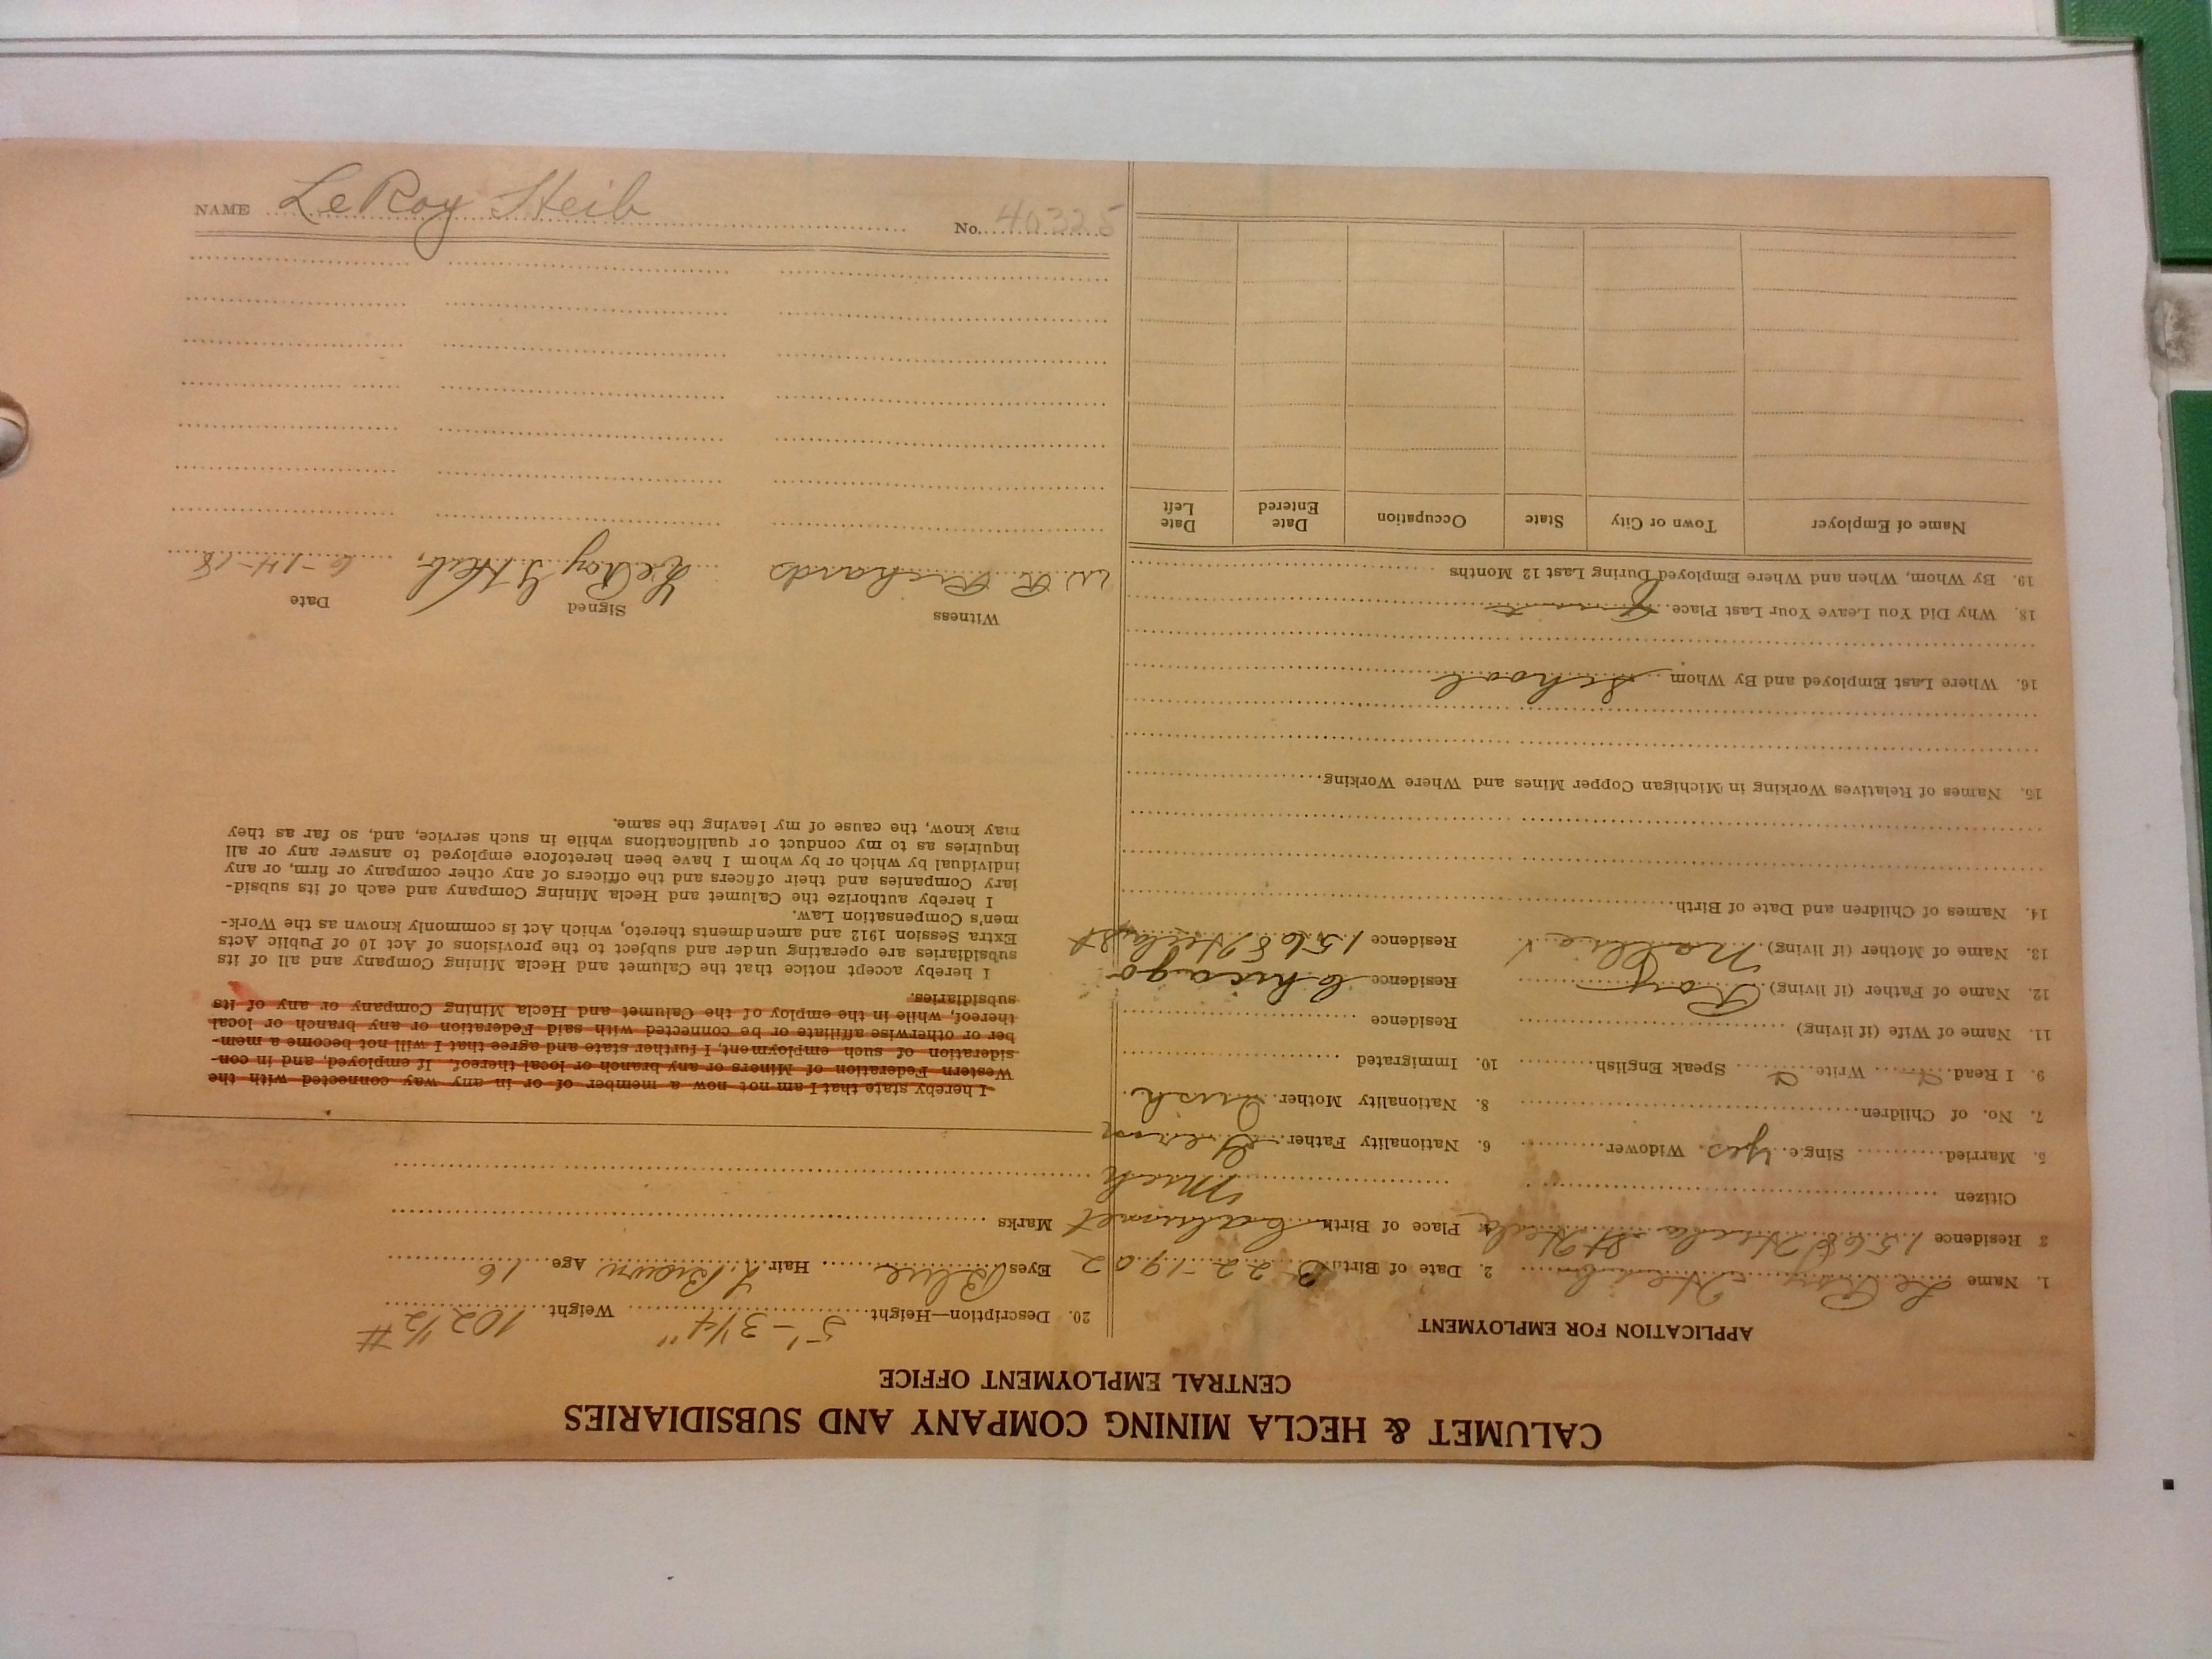 CALUMET & HECLA MINING COMPANY AND SUBSIDIARIES
CENTRAL EMPLOYMENT OFFICE
APPLICATION FOR EMPLOYMENT
1. Name LeRoy Heib 2. Date of Birth 22-1902
3 Residence 1568 Hecla St Hecla 4. Place of Birth Calumet
Mich
Citizen
5. Married Single yes. Widower 6. Nationality Father Germ
7. No. of Children 8. Nationality Mother Irish
9. I Read Write Speak English 10. Immigrated
11. Name of Wife (if living) Residence
12. Name of Father (if living) Roy Residence Chicago
13. Name of Mother (if living) Residence 1568 Hecla St
14. Names of Children and Date of Birth
15. Names of Relatives Working in Michigan Copper Mines and Where Working
16. Where Last Employed and By Whom School
18. Why Did You Leave Your Last Place
19. By Whom, When and Where Employed During Last 12 Months
Name of Employer Town or City State Occupation Date Entered Date Left
20. Description—Height 5'-3 1/4" Weight 102 1/2 #
Eyes Blue Hair L. Brown Age 16
Marks
I hereby state that I am not now a member of or in any way connected with the
Western Federation of Miners or any branch or local thereof. If employed, and in con-
sideration of such employment, I further state and agree that I will not become a mem-
ber or otherwise affiliate or be connected with said Federation or any branch or local
thereof, while in the employ of the Calumet and Hecla Mining Company or any of its
subsidiaries.
I hereby accept notice that the Calumet and Hecla Mining Company and all of its
subsidiaries are operating under and subject to the provisions of Act 10 of Public Acts
Extra Session 1912 and amendments thereto, which Act is commonly known as the Work-
men's Compensation Law.
I hereby authorize the Calumet and Hecla Mining Company and each of its subsid-
iary Companies and their officers and the officers of any other company or firm, or any
individual by which or by whom I have been heretofore employed to answer any or all
inquiries as to my conduct or qualifications while in such service, and, so far as they
may know, the cause of my leaving the same.
Witness Signed Date
W R Richards LeRoy Heib. 6-14-18
NAME LeRoy Heib No. 40325